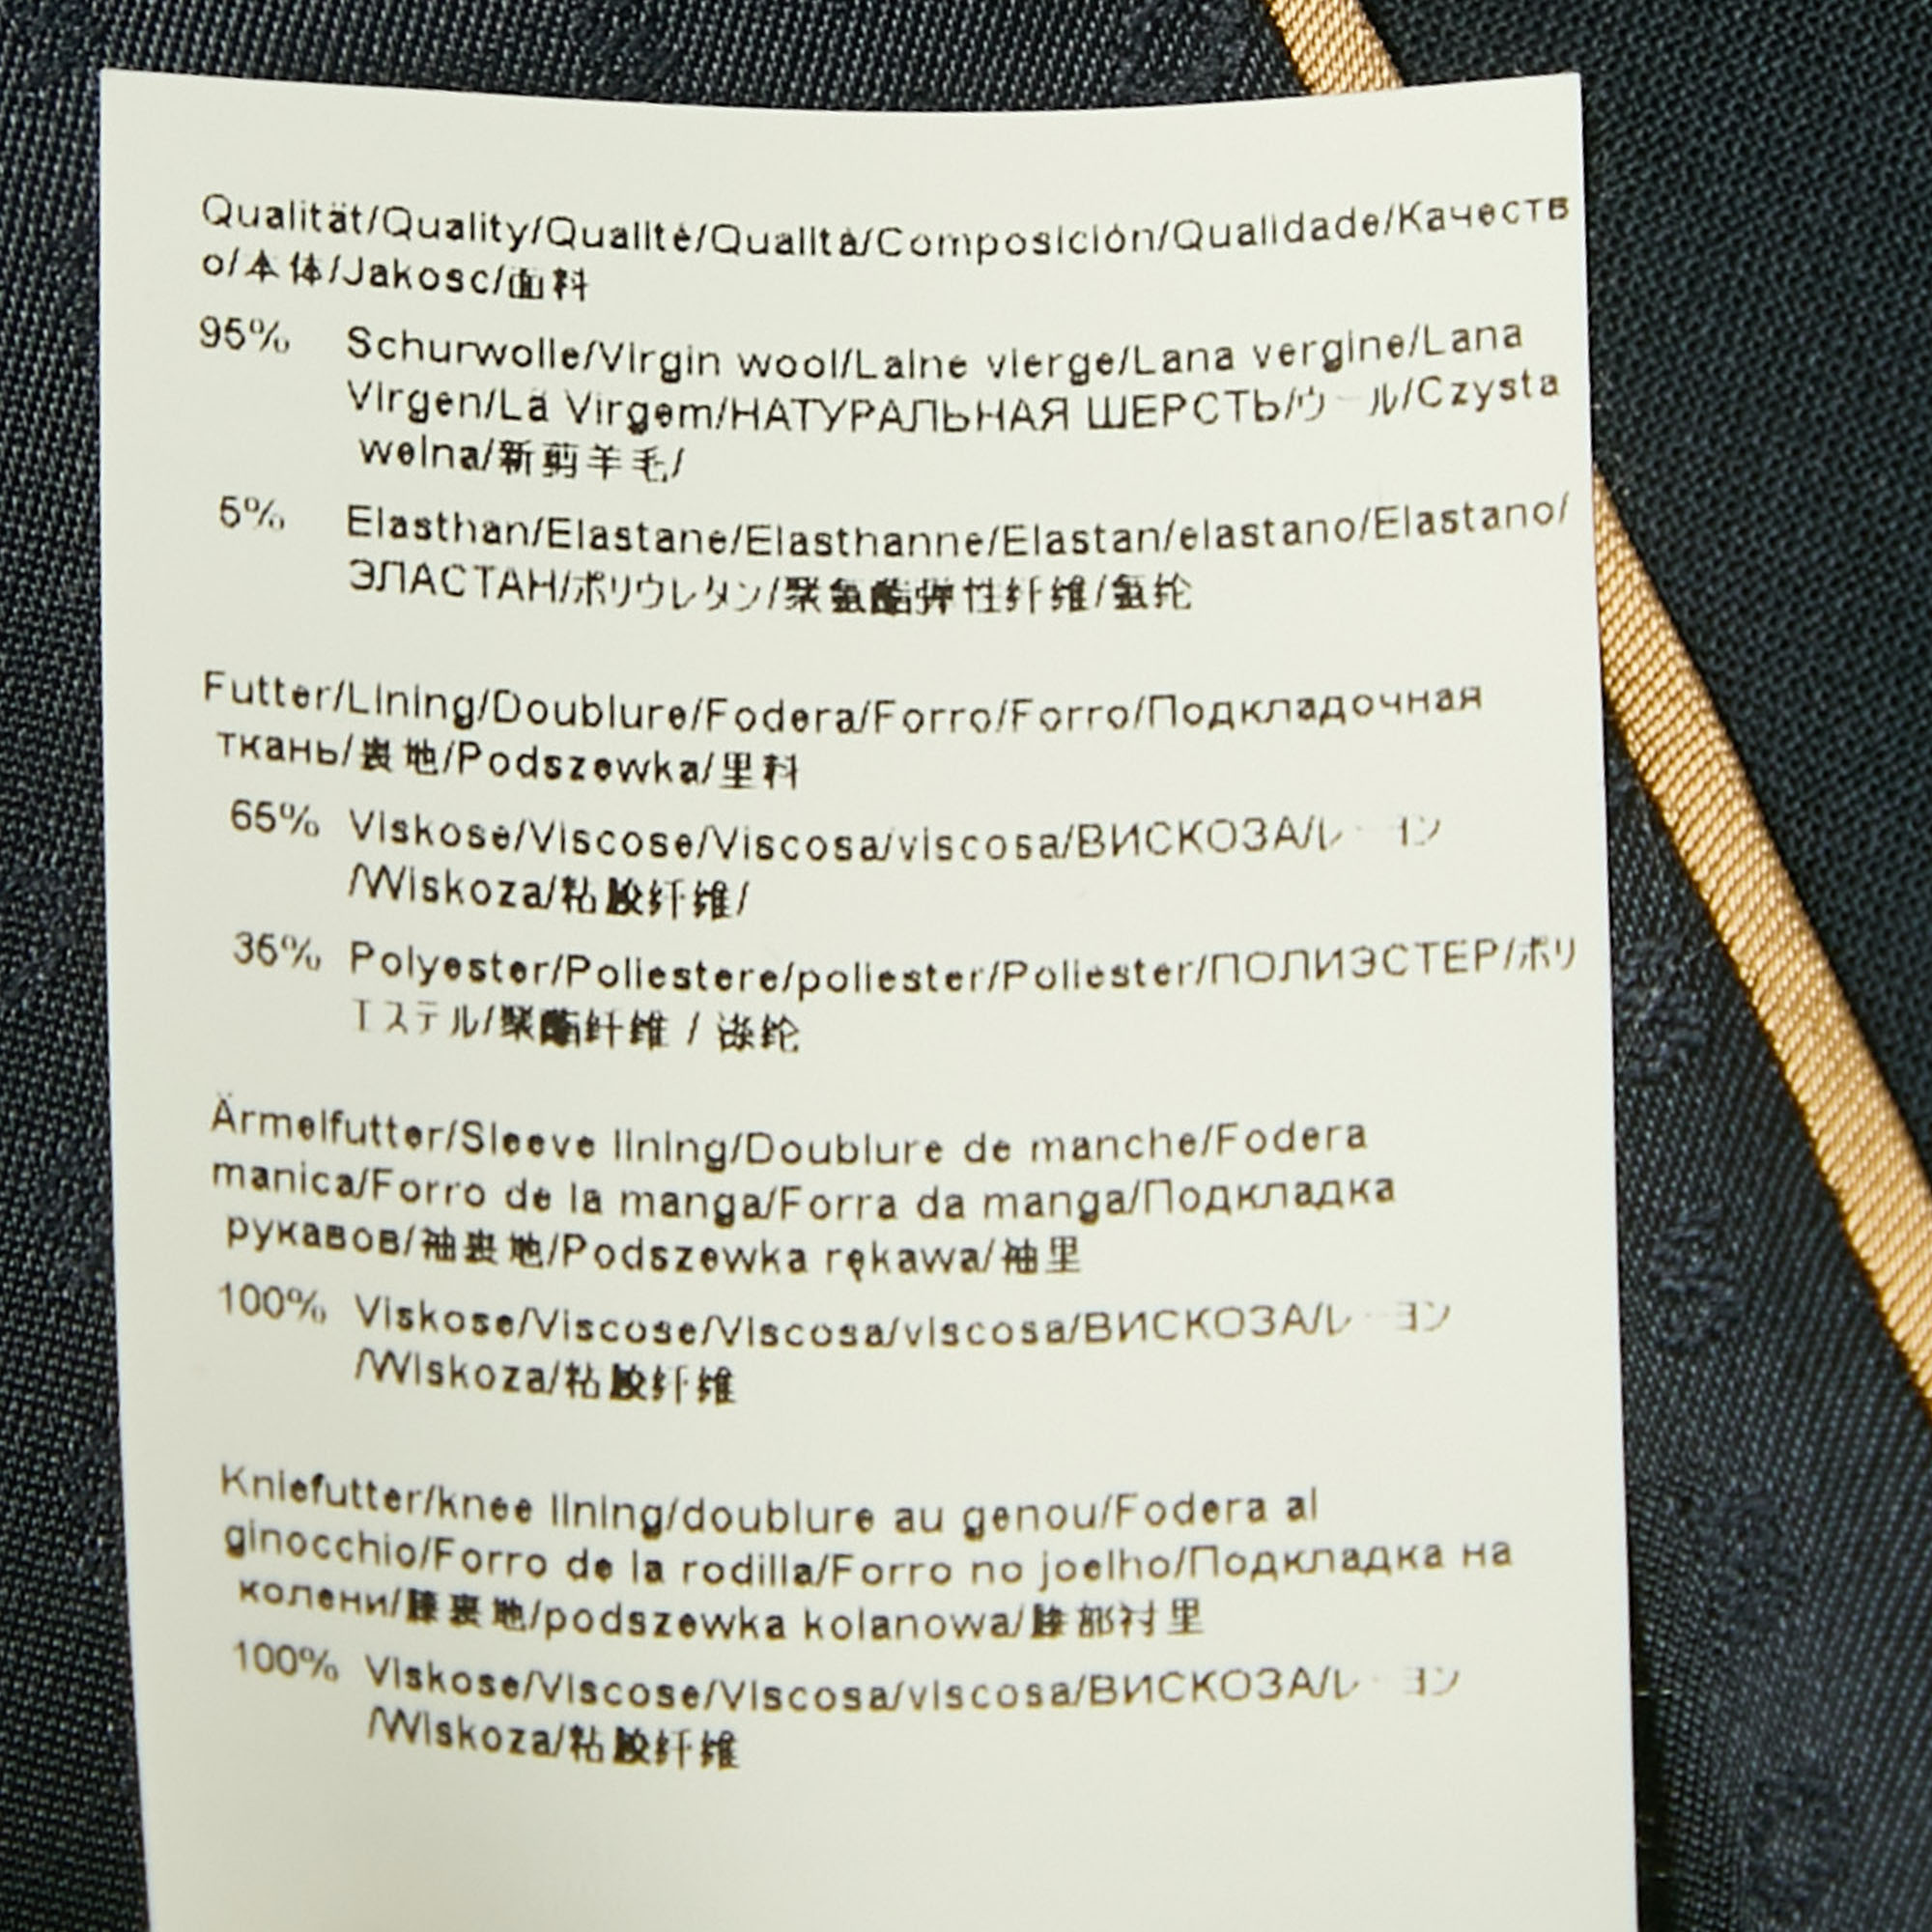 Qualität/Quality/Qualité/Qualità/Composición/Qualidade/Качеств
о/本体/Jakosc/面料
95% Schurwolle/Virgin wool/Laine vierge/Lana vergine/Lana
Virgen/Lä Virgem/НАТУРАЛЬНАЯ ШЕРСТЬ/ウール/Czysta
welna/新剪羊毛/
5% Elasthan/Elastane/Elasthanne/Elastan/elastano/Elastano/
ЭЛАСТАН/ポリウレタン/聚氨酯弹性纤维/氨纶
Futter/Lining/Doublure/Fodera/Forro/Forro/Подкладочная
ткань/裏地/Podszewka/里料
65% Viskose/Viscose/Viscosa/viscosa/ВИСКОЗА/レーヨン
/Wiskoza/粘胶纤维/
35% Polyester/Poliestere/poliester/Poliéster/ПОЛИЭСТЕР/ポリ
エステル/聚酯纤维 / 涤纶
Ärmelfutter/Sleeve lining/Doublure de manche/Fodera
manica/Forro de la manga/Forra da manga/Подкладка
рукавов/袖裏地/Podszewka rękawa/袖里
100% Viskose/Viscose/Viscosa/viscosa/ВИСКОЗА/レーヨン
/Wiskoza/粘胶纤维
Kniefutter/knee lining/doublure au genou/Fodera al
ginocchio/Forro de la rodilla/Forro no joelho/Подкладка на
колени/膝裏地/podszewka kolanowa/膝部衬里
100% Viskose/Viscose/Viscosa/viscosa/ВИСКОЗА/レーヨン
/Wiskoza/粘胶纤维